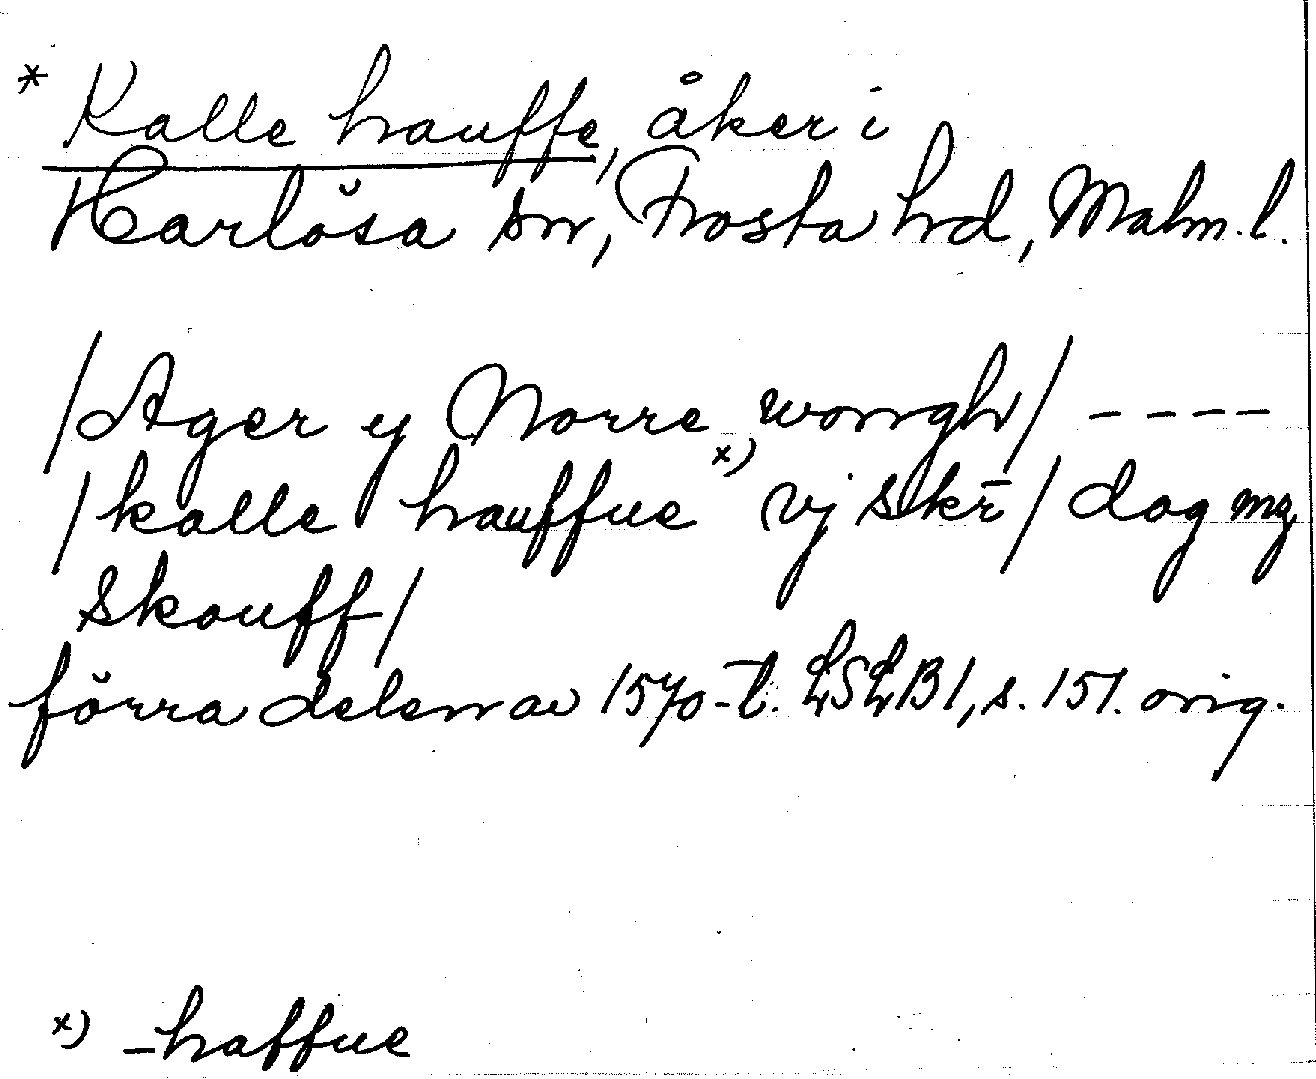 * Kalle hauffe, åker i
Harlösa sn, Frosta hd, Malm. l.
/Ager y Norre wongh/ ----
/kalle hauffue x) vj skr̄/ dog mz
skouff/
förra delen av 1570-t. LSLB1, s. 151. orig.
x) -haffue